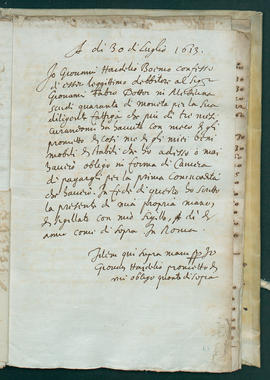 A di 30 di Luglio 1613.
Io Giovanni Haedelio Boemo confesso
di esser legittimo debitore al Sigr
Giovanni Fabro Dottor in Medicina
scudi quaranta di moneta per la sua
diligente fattiga che più di tre mesi
curandomi ha havuta con meco et gli
prometto di me et di miei beni
mobili et stabili che ho adesso ò mai
haverò obligo in forma di Camera
di pagargli per la prima comodità
che haverò. In fede di questo ho scritto
la presente di mia propria mano,
et sigillata con mio sigillo, di et
anno come di sopra. In Roma.
Idem qui supra manu ppa Io
Giovan Haedelio prometto et
mi obligo quanto di sopra